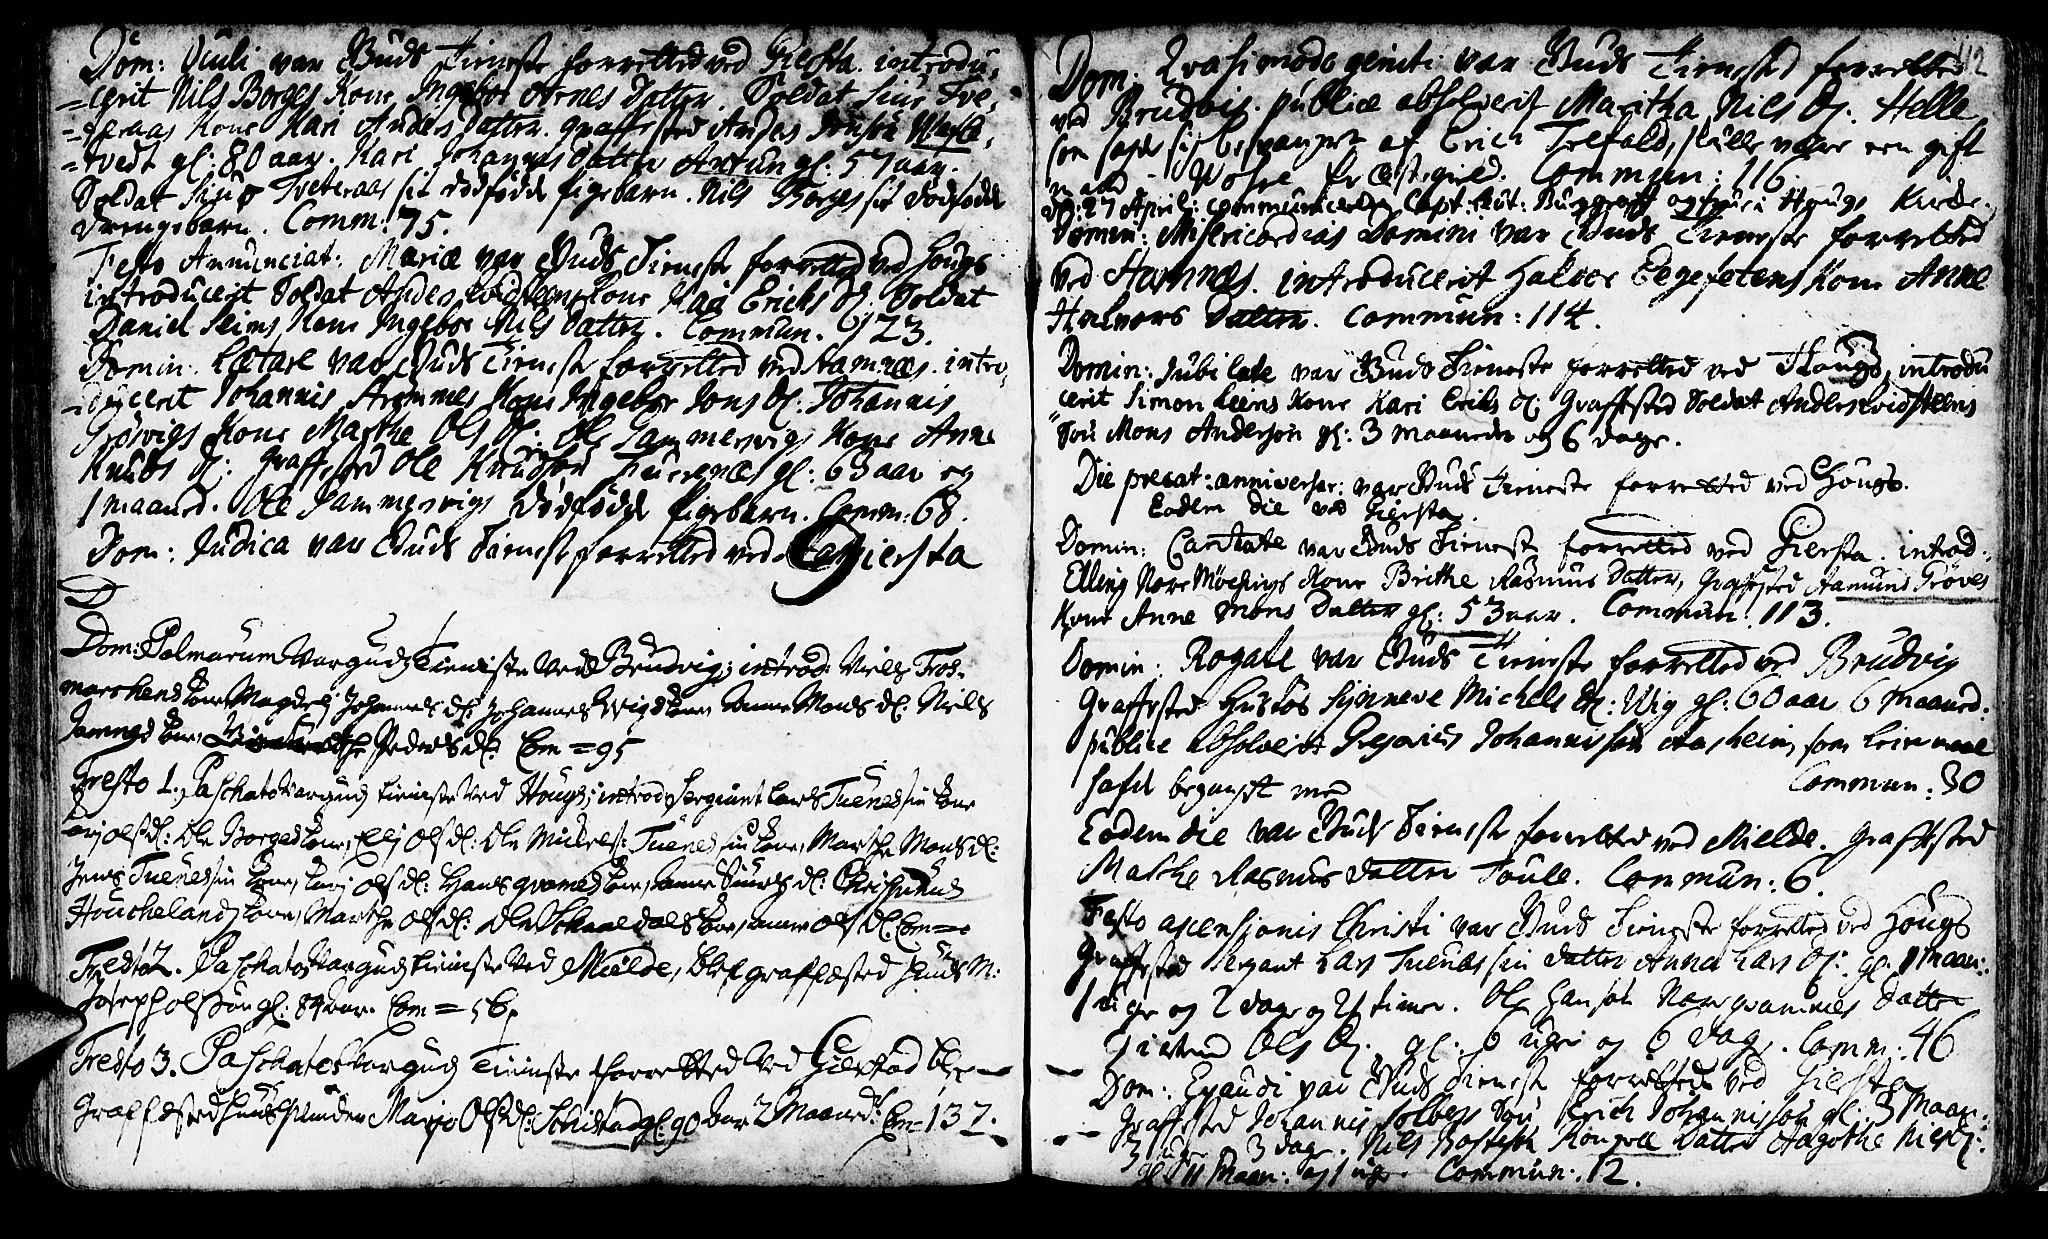 Dom: Oculi var Guds Tieneste forretted ved Giersta. introdu,
=cerit Nils Borges Kone Ingebor Arnes Datter. Soldat Siur Tve,
=teraas Kone Kari Anders Datter. Graffæsted Anders Jensøn
=tvedt gl: 80 aar. Kari Johannis Datter Antun gl: 57 aar.
Soldat Siur Tveteraas sit dødfødde pigebarn. Nils Borges sit dødfødde
Drengebarn. Comm: 75.
Festo Annunciat: Mariæ var Guds Tieneste forretted ved Hougs
introducerit Soldat Anders Eidsteens Kone Kari Erichs D. Soldat
Daniel Seims Kone Ingebor Nils Datter. Commun. 123.
Domin. Lætare var Guds Tieneste forretted ved Hamnes. intro,
=ducerit Johannis Kone Ingebor Jons D: Johannis
Kone Marthe Ols D: Ole Hammersvigs Kone Anne
Knuds D: Graffæsted Ole Knudsøn gl: 63 aar og
1 maaned. Ole Hammersvigs dødfødde pigebarn. Comm: 68.
Dom: Judica var Guds Tieneste forretted ved Giersta
Dom: Palmarum Var Guds Tieniste Ved Brudvig; introd: Niels Tros-
marchens Kone Magdeli Johannes D: Johannes Wigs Kone Anne Mons D: Niels
Kone, Peders D: Com = 95
Festo 1. Paschatos Var Guds tieniste Ved Hougs; introd Sergiant Lars Tuenes sin Kone
Kari Ols D: Ole Borges Kone, Eli Ols D: Ole Mickels: Tuenes sin Kone, Marthe Mons D:
Jens Tuenes sin Kone, Kari Ols D: Hans qvames Kone, Anne Siurs D: Christen
Houchelands Kone, Marthe Ols D: Ole Kone, Anne Ols D. Com =
Festo 2. Paschatos Var Guds tieniste Ved Mielde, blef graffæsted Huus M:
Joseph Olssøn gl: 84 aar. Com = 56,
Festo 3. Paschatos Var Guds Tieniste forretted Ved Gierstad blef
Graffæsted Huusqvinden Mari Ols D: gl: 90 aar 2 Maaned: Com = 132.
112
Dom: Qvasimodo geniti var Guds Tieneste forretted
ved Brudvig. publicè absolverit Maritha Nils D: Helle
som sagde sig besvangret af Erich Trefald, skulle være een gift
mand Commun: 116.
D: 27 April: communicerede Capt: Burgraff og frue i Hougs Kirke.
Domin: Misericordias Domini var Guds Tieneste forretted
ved Hamnes. introducerit Halvor Eegesetens Kone Anne
Halvors Datter. Commun: 114.
Domin: Jubilate var Guds Tieneste forretted ved Hougs, introdu
cerit Simon Leens Kone Kari Erichs D: Graffæsted Soldat Anders Eidsteens
Søn Mons Andersøn gl: 3 maaneder og 6 dage.
Die precat: anniversar: var Guds Tieneste forretted ved Hougs.
Eodem die ved Giersta.
Domin: Cantate var Guds Tieneste forretted ved Giersta. introd:
Elling Nore Kone Brithe Rasmus Datter, Graffæsted Aamund
Kone Anne Mons Datter gl: 53 aar. Commun. 113.
Domin: Rogate var Guds Tieneste forretted ved Brudvig
Graffæsted Hustos Synneve Michels D: Vig gl: 60 aar 6 Maaned:
publicè absolverit Gregorius Johannissøn Aasheim, som Leiermaal
hafde begaaet med Commun: 30
Eodem die var Guds Tieneste forretted ved Mielde. Graffæsted
Marthe Rasmus Datter Toule. Commun: 6.
Festo ascensionis Christi var Guds Tieneste forretted ved Hougs
Graffæsted Sergiant Lars Tuenes sin Datter Anna Lars D: gl: 1 Maan:
1 uge og 2 dage og 21 timer. Ole Hansøn Nore qvammes Datter
Ols D. gl: 6 uger og 6 Dage. Comm: 46
Dom: Exaudi var Guds Tieneste forretted ved Giersta
Graffæsted Johannis Solbergs Søn Erich Johannissøn gl: 3 Maan:
3 uger 3 dage. Nils Datter Aagothe Nils D:
gl: 11 Maan: og 1 uge. Commun: 12.